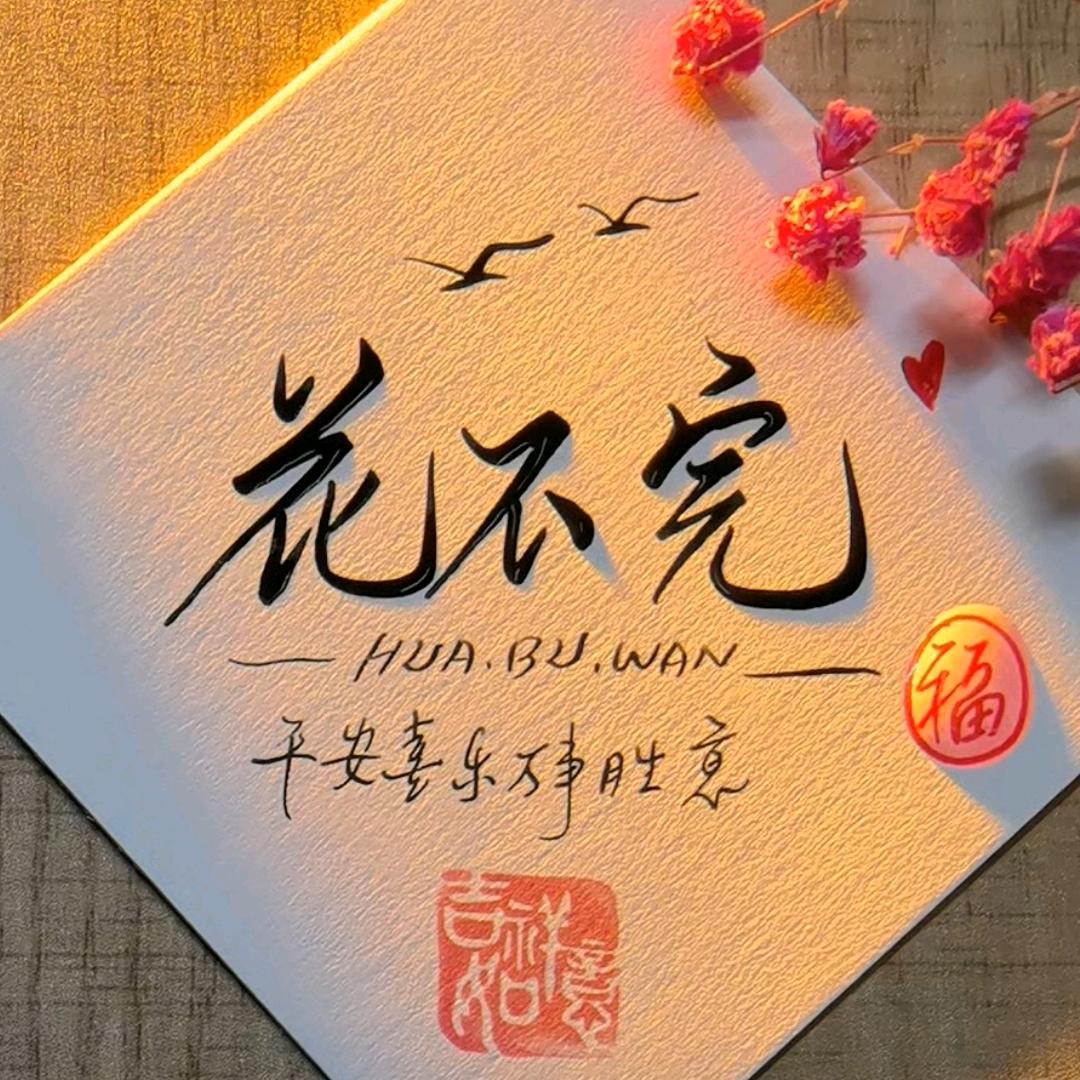 花不完
HUA.BU.WAN
福
平安喜乐万事胜意
吉祥如意